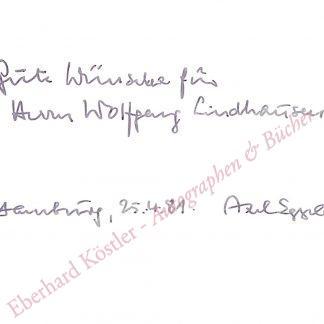 Gute Wünsche für
Herrn Wolfgang Lindhauser
Hamburg, 25.4.89. Axel Egge
Eberhard Köstler - Autographen & Bücher